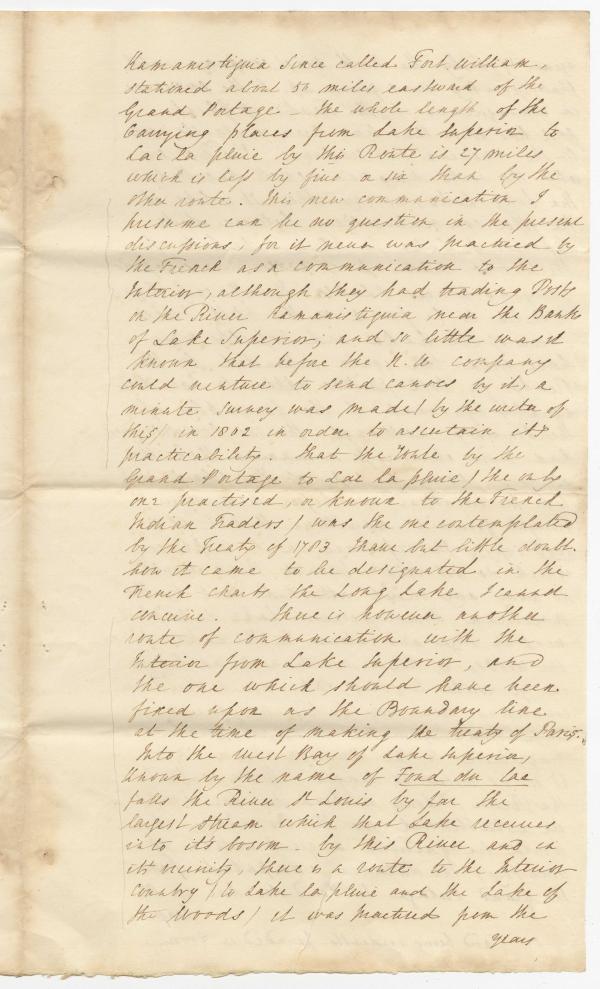 Kamanistiguia since called Fort William,
stationed about 50 miles eastward of the
Grand Portage – the whole length of the
Carrying places from Lake Superior to
Lac la pluie by this Route is 27 miles
which is less by five or six than by the
other route. This new communication I
presume can be no question in the present
discussions, for it never was practised by
the French as a communication to the
Interior, although they had trading Posts
on the River Kamanistiguia near the Banks
of Lake Superior; and so little was it
known that before the N. W company
could venture to send canoes by it, a
minute survey was made (by the writer of
this) in 1802 in order to ascertain its
practicability. That the route by the
Grand Portage to Lac la pluie (the only
one practised, or known to the French
Indian Traders) was the one contemplated
by the Treaty of 1783 I have but little doubt.
how it came to be designated in the
French charts the Long Lake I cannot
conceive. There is however another
route of communication with the
Interior from Lake Superior, and
the one which should have been
fixed upon as the Boundary line
at the time of making the treaty of Paris.
Into the west Bay of Lake Superior,
known by the name of Fond du Lac
falls the River St Louis by far the
largest stream which that Lake receives
into it's bosom – by this River and in
it's vicinity, there is a route to the Interior
country (to Lake la pluie and the Lake of
the Woods) it was practised from the
years